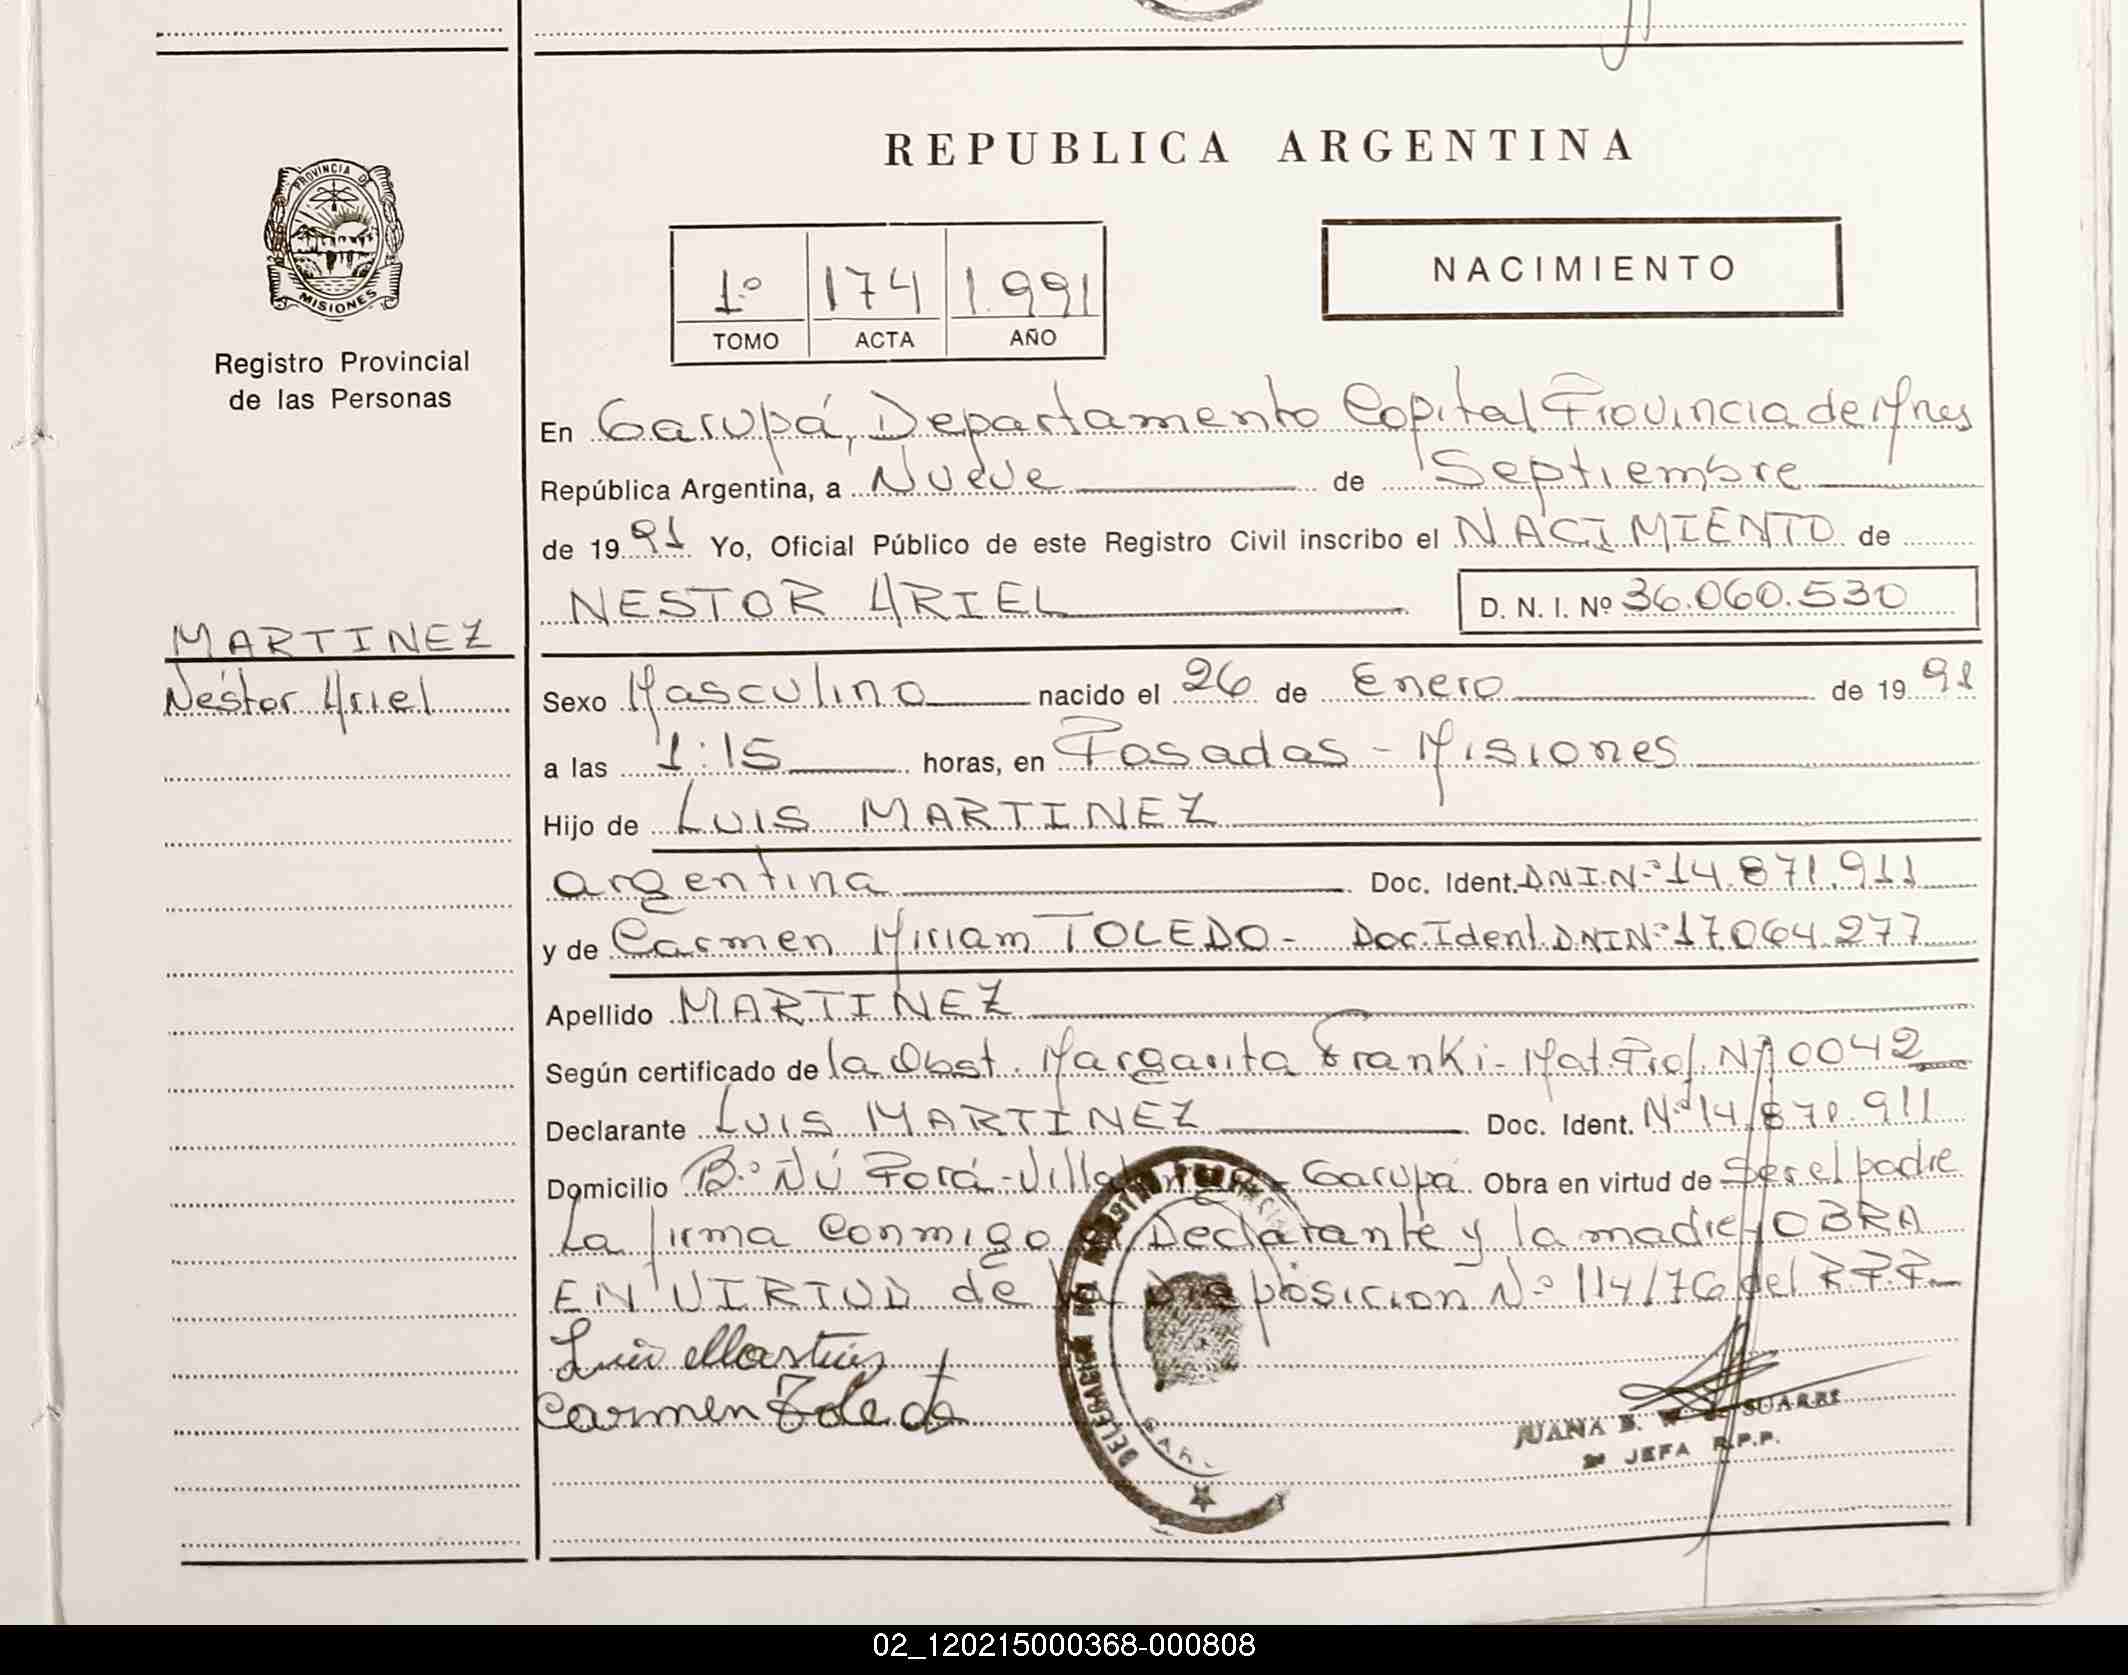 REPUBLICA ARGENTINA
PROVINCIA DE
MISIONES
Registro Provincial
de las Personas
1º 174 1.991
TOMO ACTA AÑO
NACIMIENTO
En Garupá, Departamento Capital Provincia de Mnes
República Argentina, a Nueve de Septiembre
de 1991 Yo, Oficial Público de este Registro Civil inscribo el NACIMIENTO de
NESTOR ARIEL D. N. I. Nº 36.060.530
MARTINEZ
Nestor Ariel
Sexo Masculino nacido el 26 de Enero de 1991
a las 1:15 horas, en Posadas - Misiones
Hijo de Luis MARTINEZ
argentina Doc. Ident. DNI.Nº 14.871.911
y de Carmen Miriam TOLEDO - Doc.Ident. DNI Nº 17.064.277
Apellido MARTINEZ
Según certificado de la Obst. Margarita Franki - Mat. Prof. Nº 0042
Declarante Luis MARTINEZ Doc. Ident. Nº 14.871.911
Domicilio Bº Ñú Porá - Garupá Obra en virtud de Ser el padre
La firma conmigo el Declarante y la madre, OBRA
EN VIRTUD de la Disposicion Nº 114/76 del R.P.P.
Luis Martinez
Carmen Toledo
JUANA B. W. de SUAREZ
JEFA R.P.P.
02_120215000368-000808